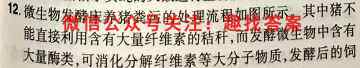 12.微生物发酵培养猪粪再处理流程如图所示。其中猪不
微信公众号关注：趣找答案
能直接利用含有大量纤维素的秸秆,而发酵微生物中含有
大量酶类,可消化分解纤维素等大分子物质,发酵后的饲